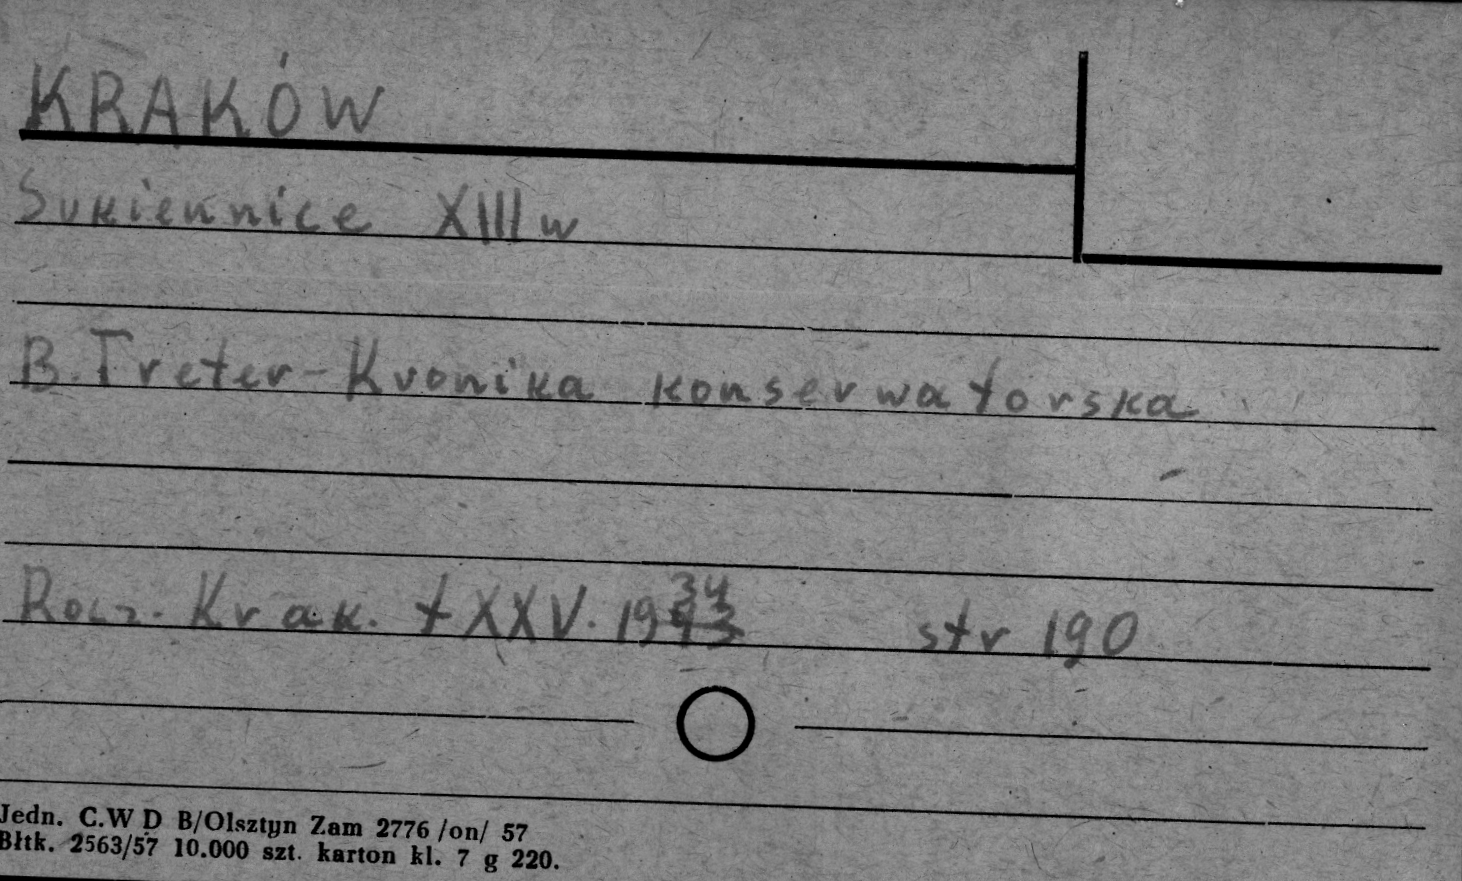 KRAKÓW
Sukiennice XIII w
B. Treter - Kronika konserwatorska
Rocz. Krak. t XXV. 1934 str 190
Jedn. C.W D B/Olsztyn Zam 2776 /on/ 57
Błtk. 2563/57 10.000 szt. karton kl. 7 g 220.